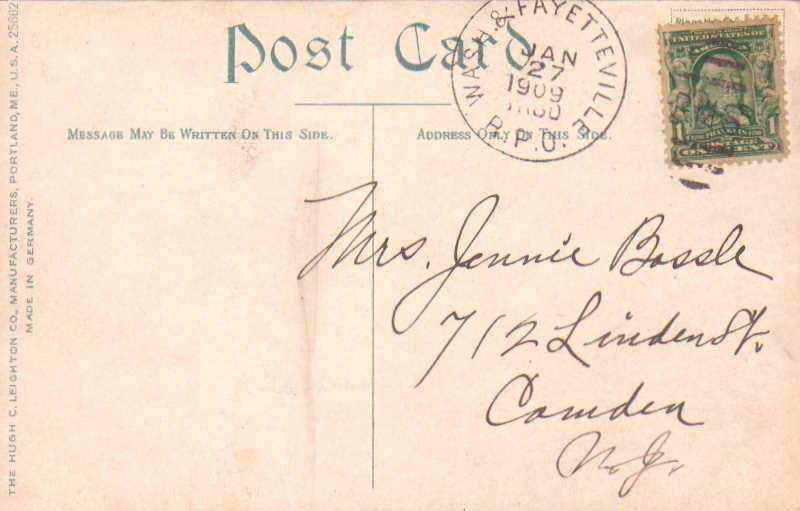 Post Card
WASH. & FAYETTEVILLE
JAN
27
1909
R.P.O.
UNITED STATES OF
AMERICA
1 FRANKLIN 1
POSTAGE
ONE CENT
MESSAGE MAY BE WRITTEN ON THIS SIDE.
ADDRESS ONLY ON THIS SIDE.
Mrs. Jennie Bossle
712 Linden St.
Camden
N.J.
THE HUGH C. LEIGHTON CO., MANUFACTURERS, PORTLAND, ME., U.S.A. 25662
MADE IN GERMANY.